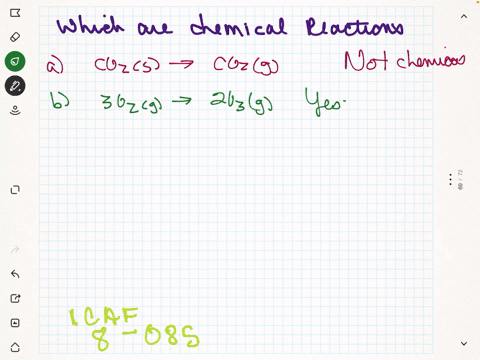 Which are chemical Reactions
a) CO2(s) → CO2(g) Not chemical
b) 3O2(g) → 2O3(g) Yes.
69 / 72
ICAF
8-085